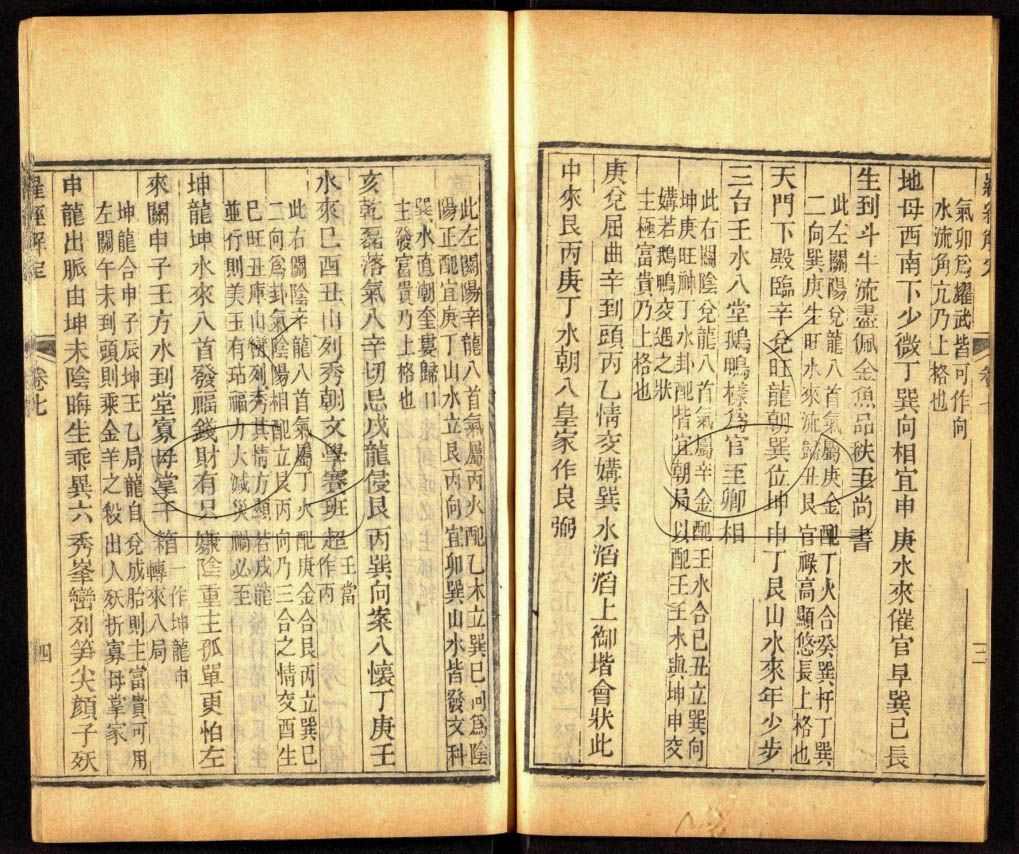 氣卯爲耀武皆可作向
水流角亢乃上格也
地母西南下少微丁巽向相宜申庚水來催官早巽己長
生到斗牛流盡佩金魚品秩至尚書
此左關陽兌龍八首氣屬庚金配丁火合癸巽杼丁巽
二向巽庚生旺水來流歸丑艮官祿高顯悠長上格也
天門下殿臨辛兌旺龍朝巽位坤申丁艮山水來年少步
三台壬水八堂鵝鴨樣爲官至卿相
此右關陰兌龍八首氣屬辛金配壬水合巳丑立巽向
坤庚旺神丁水卦配皆宜朝局以配王壬水與坤申交
媾若鵝鴨交遇之狀
主極富貴乃上格也
庚兌屈曲辛到頭丙乙情交媾巽水滔滔上御堦會狀此
中來艮丙庚丁水朝八皇家作良弼
三
此左關陽辛龍八首氣屬丙火配乙木立巽巳向爲陰
陽正配宜庚丁山水立艮丙向宜卯巽山水皆發文科
巽水直朝奎婁歸
主發富貴乃上格也
亥乾磊落氣八辛切忌戌龍侵艮丙巽向案八懷丁庚壬
水來巳酉丑山列秀朝文學賽班超 壬當作丙
此右關陰辛龍八首氣屬丁火配庚金合艮丙立巽巳
二向爲卦氣陰陽相配立艮丙向乃三合之情交酉生
巳旺丑庫山巒列秀其情方顯若戌龍
並行則美玉有玷福力大減災禍必至
坤龍坤水來八首發福錢財有只嫌陰重主孤單更怕左
來關申子壬方水到堂寡母掌千箱 一作坤龍坤轉來八局
坤龍合申子辰坤壬乙局龍自兌成胎則主富貴可用
左關午未到頭則乘金羊之殺出人妖折寡母掌家
申龍出脈由坤未陰晦生乖異六秀峯巒列筍尖顏子妖
羅經解定
卷七
四